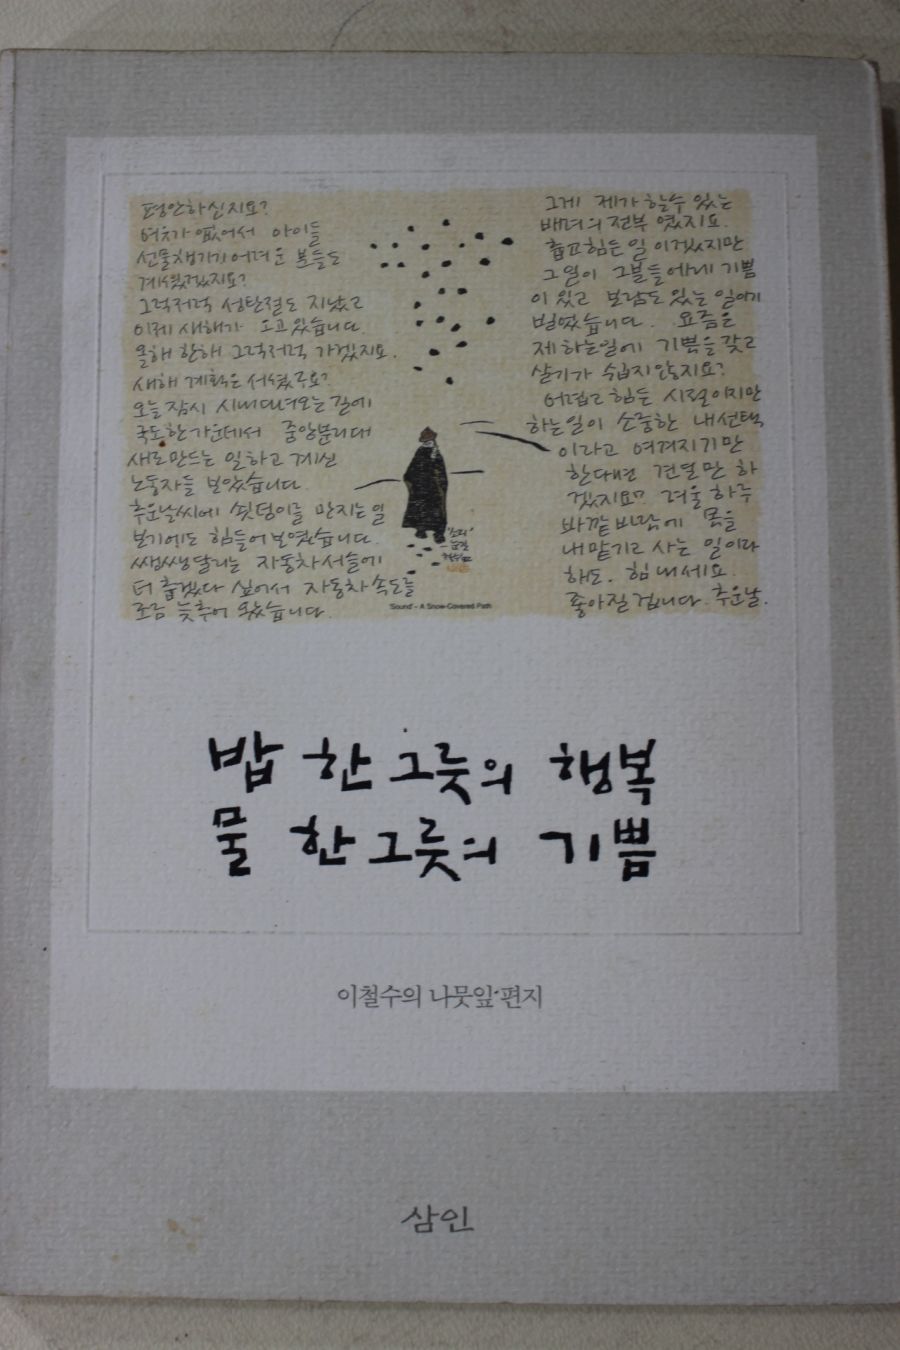 평안하신지요?
여유가 없어서 아이들
선물챙기기 어려운 분들도
계셨겠지요?
그럭저럭 성탄절도 지났고
이제 새해가 오고 있습니다.
올해 한해 그럭저럭 가겠지요.
새해 계획은 서셨구요?
오늘 잠시 시내 다녀오는 길에
국도 한가운데서 중앙분리대
새로 만드는 일 하고 계신
노동자들 보았습니다.
추운날씨에 쇳덩이를 만지는 일
보기에도 힘들어 보였습니다.
쌩쌩 달리는 자동차 서슬에
더 춥겠다 싶어서 자동차 속도를
조금 늦추어 왔습니다.
그게 제가 할 수 있는
배려의 전부 였지요.
춥고 힘든 일 이겠지만
그 일이 그분들에게 기쁨
이 있고 보람도 있는 일이기
빌었습니다. 요즘은
제 하는 일에 기쁨을 갖고
살기가 쉽지 않지요?
어렵고 힘든 시절이지만
하는 일이 소중한 내 선택
이라고 여겨지기만
한다면 견딜만 하
겠지요? 겨울 하루
바깥 바람에 몸을
내맡기고 사는 일이라
해도. 힘내세요.
좋아질 겁니다. 추운날.
'소리'
'Sound' - A Snow-Covered Path
밥 한 그릇의 행복
물 한 그릇의 기쁨
이철수의 나뭇잎 편지
삼인